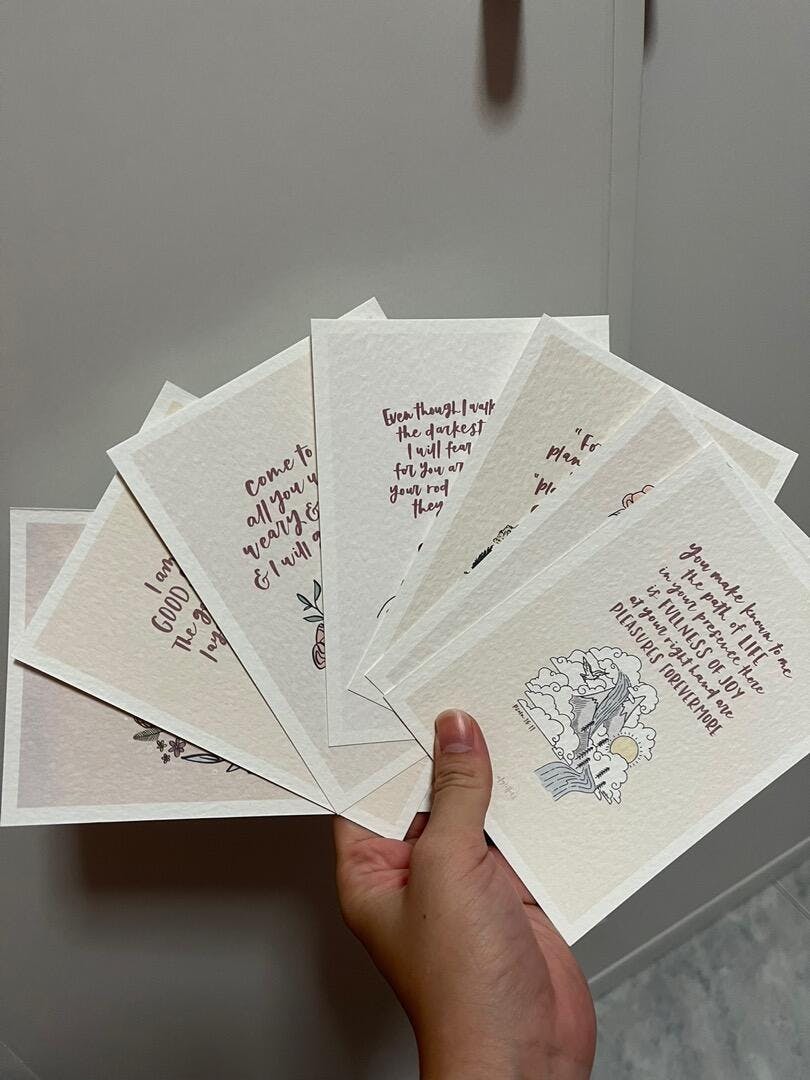 I am
GOOD
The
come to
all you
weary &
& I will
Even though I walk
the darkest
I will fear
for you
your rod
they
"For
You make known to me
the path of LIFE
in your presence there
is FULLNESS OF JOY
at your right hand are
PLEASURES FOREVERMORE
Psalm 16:11